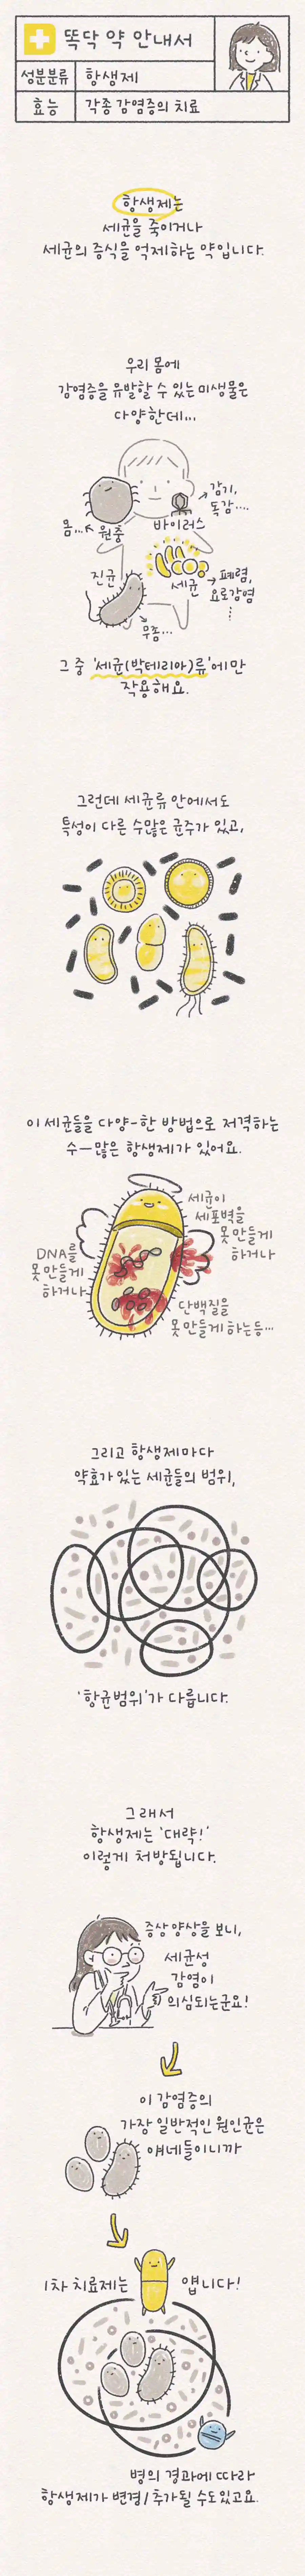 똑닥 약 안내서
성분분류 항생제
효능 각종 감염증의 치료
항생제는
세균을 죽이거나
세균의 증식을 억제하는 약입니다.
우리 몸에
감염증을 유발할 수 있는 미생물은
다양한데...
감기,
독감....
바이러스
옴... 원충
진균
세균
폐렴,
요로감염
무좀...
그 중 '세균(박테리아)류'에만
작용해요.
그런데 세균류 안에서도
특성이 다른 수많은 균주가 있고,
이 세균들을 다양-한 방법으로 저격하는
수-많은 항생제가 있어요.
세균이
세포벽을
못 만들게
하거나
DNA를
못 만들게
하거나
단백질을
못 만들게 하는 등...
그리고 항생제마다
약효가 있는 세균들의 범위,
'항균범위'가 다릅니다.
그래서
항생제는 '대략!'
이렇게 처방됩니다.
증상양상을 보니,
세균성
감염이
의심되는군요!
이 감염증의
가장 일반적인 원인균은
얘네들이니까
1차 치료제는 얩니다!
병의 경과에 따라
항생제가 변경/추가될 수도 있고요.